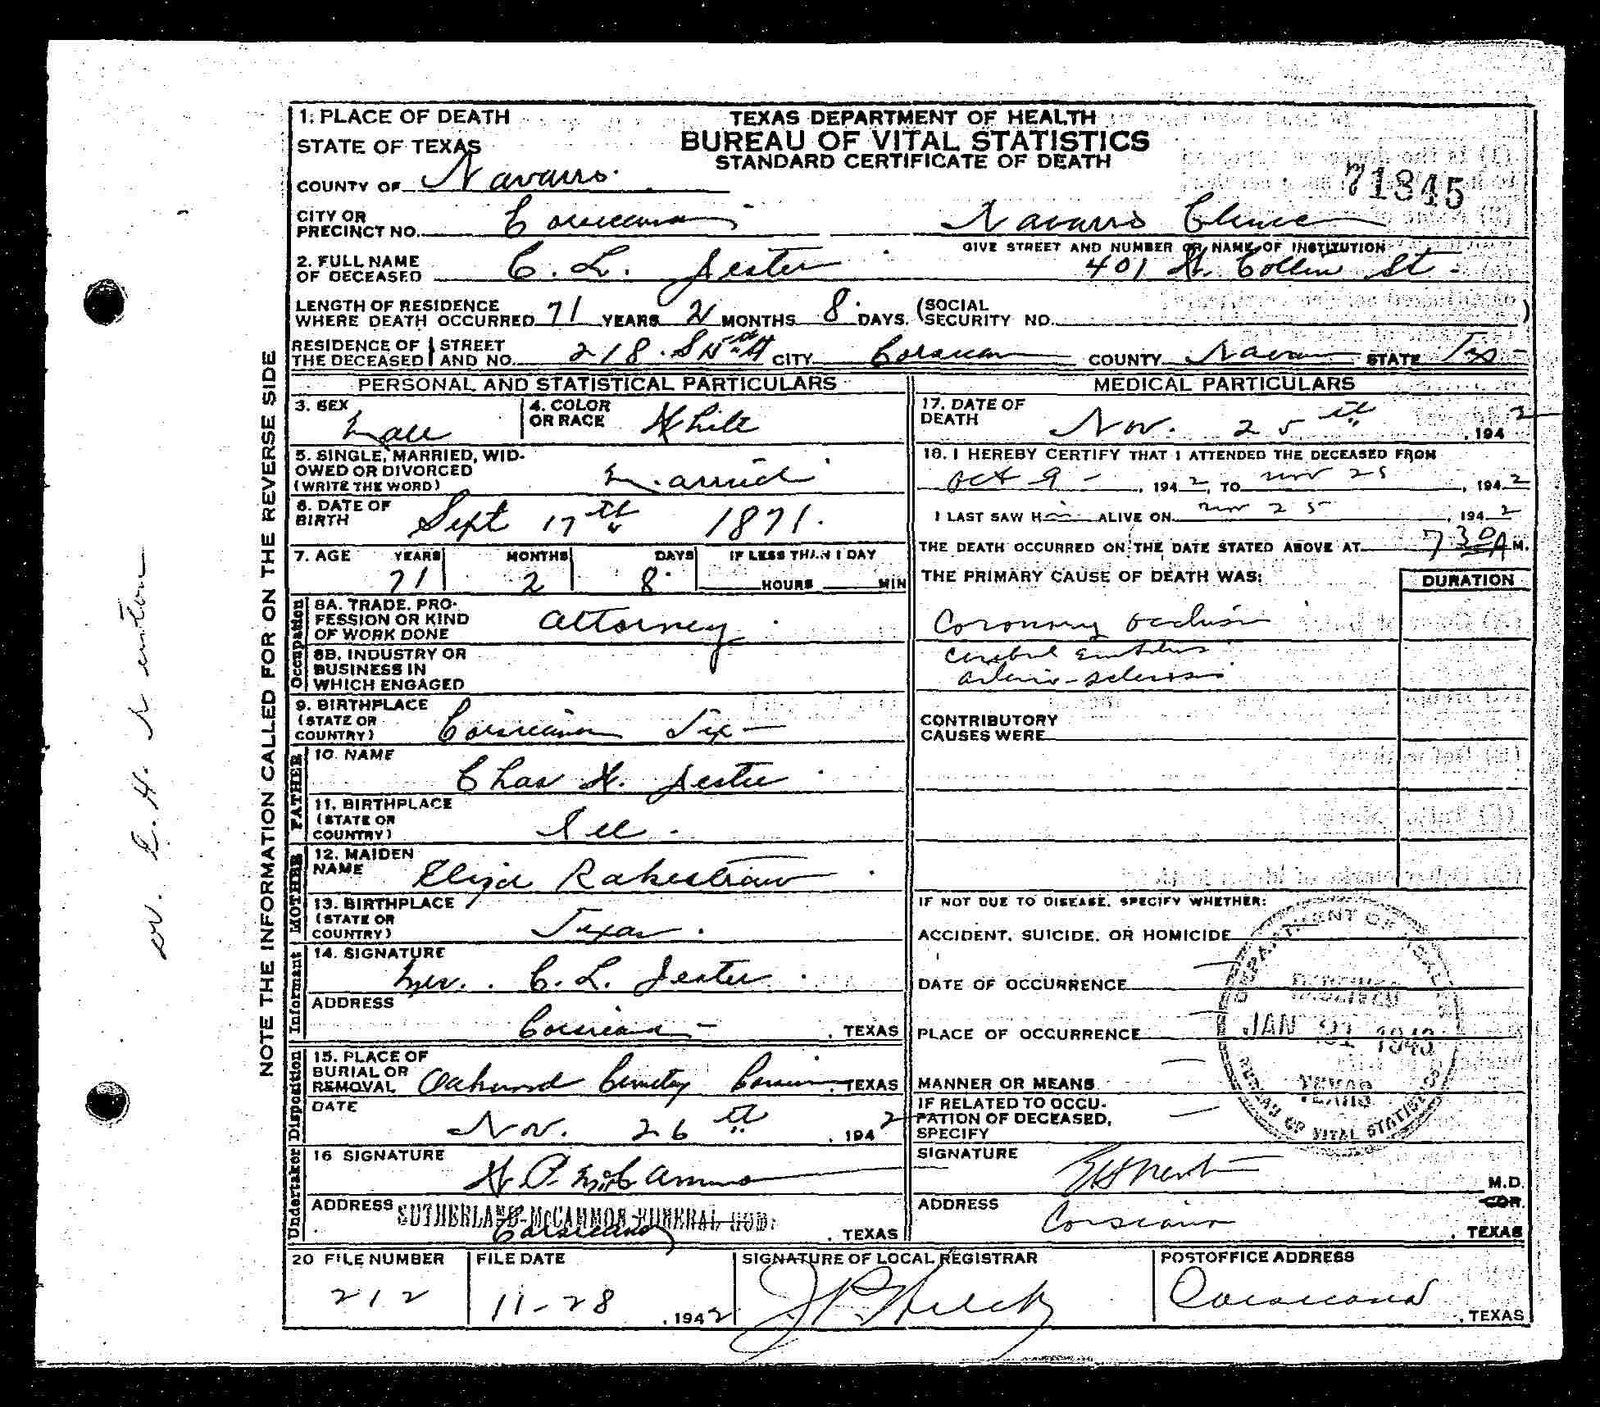 1. PLACE OF DEATH
STATE OF TEXAS
COUNTY OF Navarro.
TEXAS DEPARTMENT OF HEALTH
BUREAU OF VITAL STATISTICS
STANDARD CERTIFICATE OF DEATH
71845
CITY OR PRECINCT NO. Corsicana
Navarro Clinic
GIVE STREET AND NUMBER OR NAME OF INSTITUTION
2. FULL NAME OF DECEASED C. L. Jester
401 W. Collin St.
LENGTH OF RESIDENCE WHERE DEATH OCCURRED 71 YEARS 2 MONTHS 8 DAYS. (SOCIAL SECURITY NO. )
RESIDENCE OF THE DECEASED STREET AND NO. 218 CITY Corsicana COUNTY Navarro STATE Tex
PERSONAL AND STATISTICAL PARTICULARS
3. SEX Male
4. COLOR OR RACE White
5. SINGLE, MARRIED, WIDOWED OR DIVORCED (WRITE THE WORD) Married
6. DATE OF BIRTH Sept 17th 1871.
7. AGE YEARS MONTHS DAYS IF LESS THAN 1 DAY
71 2 8 HOURS MIN
Occupation
8A. TRADE, PROFESSION OR KIND OF WORK DONE Attorney
8B. INDUSTRY OR BUSINESS IN WHICH ENGAGED
9. BIRTHPLACE (STATE OR COUNTRY) Corsicana Tex
FATHER
10. NAME Chas W. Jester
11. BIRTHPLACE (STATE OR COUNTRY) Ill.
MOTHER
12. MAIDEN NAME Eliza Rakestraw
13. BIRTHPLACE (STATE OR COUNTRY) Texas.
Informant
14. SIGNATURE Mrs. C. L. Jester
ADDRESS Corsicana, TEXAS
Disposition
15. PLACE OF BURIAL OR REMOVAL Oakwood Cemetery Corsicana, TEXAS
DATE Nov. 26th, 1942
Undertaker
16 SIGNATURE McCammon
ADDRESS SUTHERLAND-McCAMMON FUNERAL HOME
Corsicana, TEXAS
MEDICAL PARTICULARS
17. DATE OF DEATH Nov. 25th, 1942
18. I HEREBY CERTIFY THAT I ATTENDED THE DECEASED FROM
Oct 9, 1942, TO Nov 25, 1942
I LAST SAW Him ALIVE ON Nov 25, 1942
THE DEATH OCCURRED ON THE DATE STATED ABOVE AT 7 30 A M.
THE PRIMARY CAUSE OF DEATH WAS: DURATION
Coronary Occlusion
Cerebral Embolus
Arterio-sclerosis
CONTRIBUTORY CAUSES WERE
IF NOT DUE TO DISEASE, SPECIFY WHETHER:
ACCIDENT, SUICIDE, OR HOMICIDE
DATE OF OCCURRENCE
PLACE OF OCCURRENCE
MANNER OR MEANS
IF RELATED TO OCCUPATION OF DECEASED, SPECIFY
SIGNATURE M.D.
ADDRESS Corsicana COR.
, TEXAS
DEPARTMENT OF HEALTH
RECEIVED
JAN 21 1943
TEXAS
BUREAU OF VITAL STATISTICS
20 FILE NUMBER 212
FILE DATE 11-28, 1942
SIGNATURE OF LOCAL REGISTRAR
POSTOFFICE ADDRESS Corsicana, TEXAS
NOTE THE INFORMATION CALLED FOR ON THE REVERSE SIDE
Dr. E. H. Newton